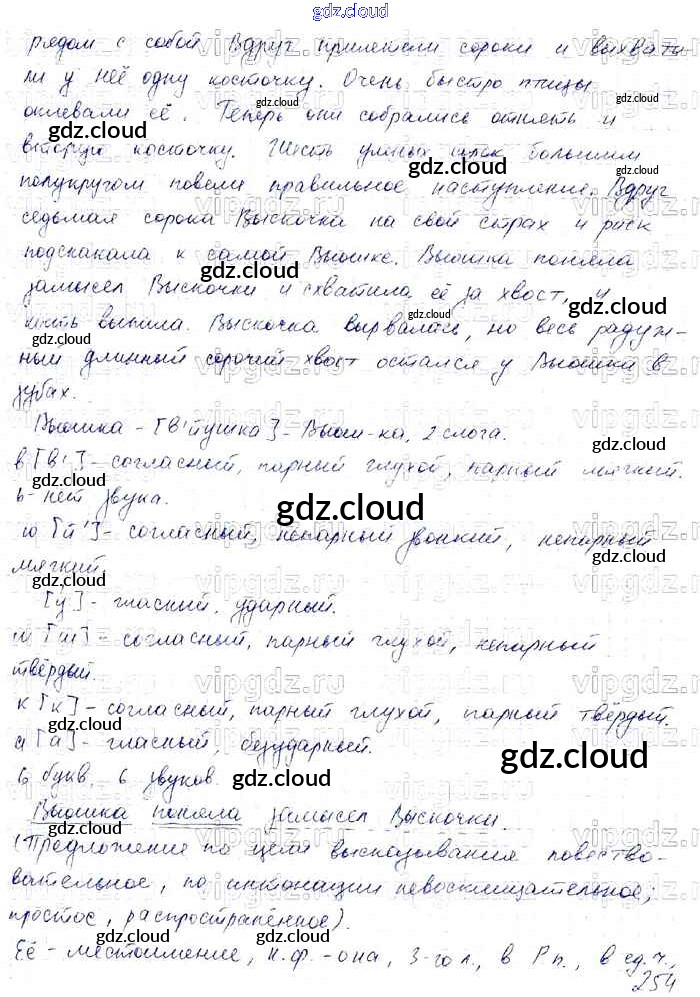 gdz.cloud
рядом с собой. Вдруг прилетели сороки и выхвати-
ли у неё одну косточку. Очень быстро птицы
склевали её. Теперь они собрались отнять и
вторую косточку. Шесть умных птиц большим
полукругом повели правильное наступление. Вдруг
седьмая сорока Выскочка на свой страх и риск
подскакала к самой Вьюшке. Вьюшка поняла
замысел Выскочки и схватила её за хвост, и
кость выпила. Выскочка вырвалась, но весь радуж-
ный длинный сорочий хвост остался у Вьюшки в
зубах.
Вьюшка - [в'йушка] - Вьюш-ка, 2 слога.
в [в'] - согласный, парный глухой, парный мягкий.
ь - нет звука.
ю [й'] - согласный, непарный звонкий, непарный
мягкий.
[у] - гласный, ударный.
ш [ш] - согласный, парный глухой, непарный
твёрдый.
к [к] - согласный, парный глухой, парный твёрдый.
а [а] - гласный, безударный.
6 букв, 6 звуков.
Вьюшка поняла замысел Выскочки.
(Предложение по цели высказывания повество-
вательное, по интонации невосклицательное,
простое, распространённое).
Её - местоимение, н.ф. - она, 3-го л., в Р.п., в ед.ч.,
254